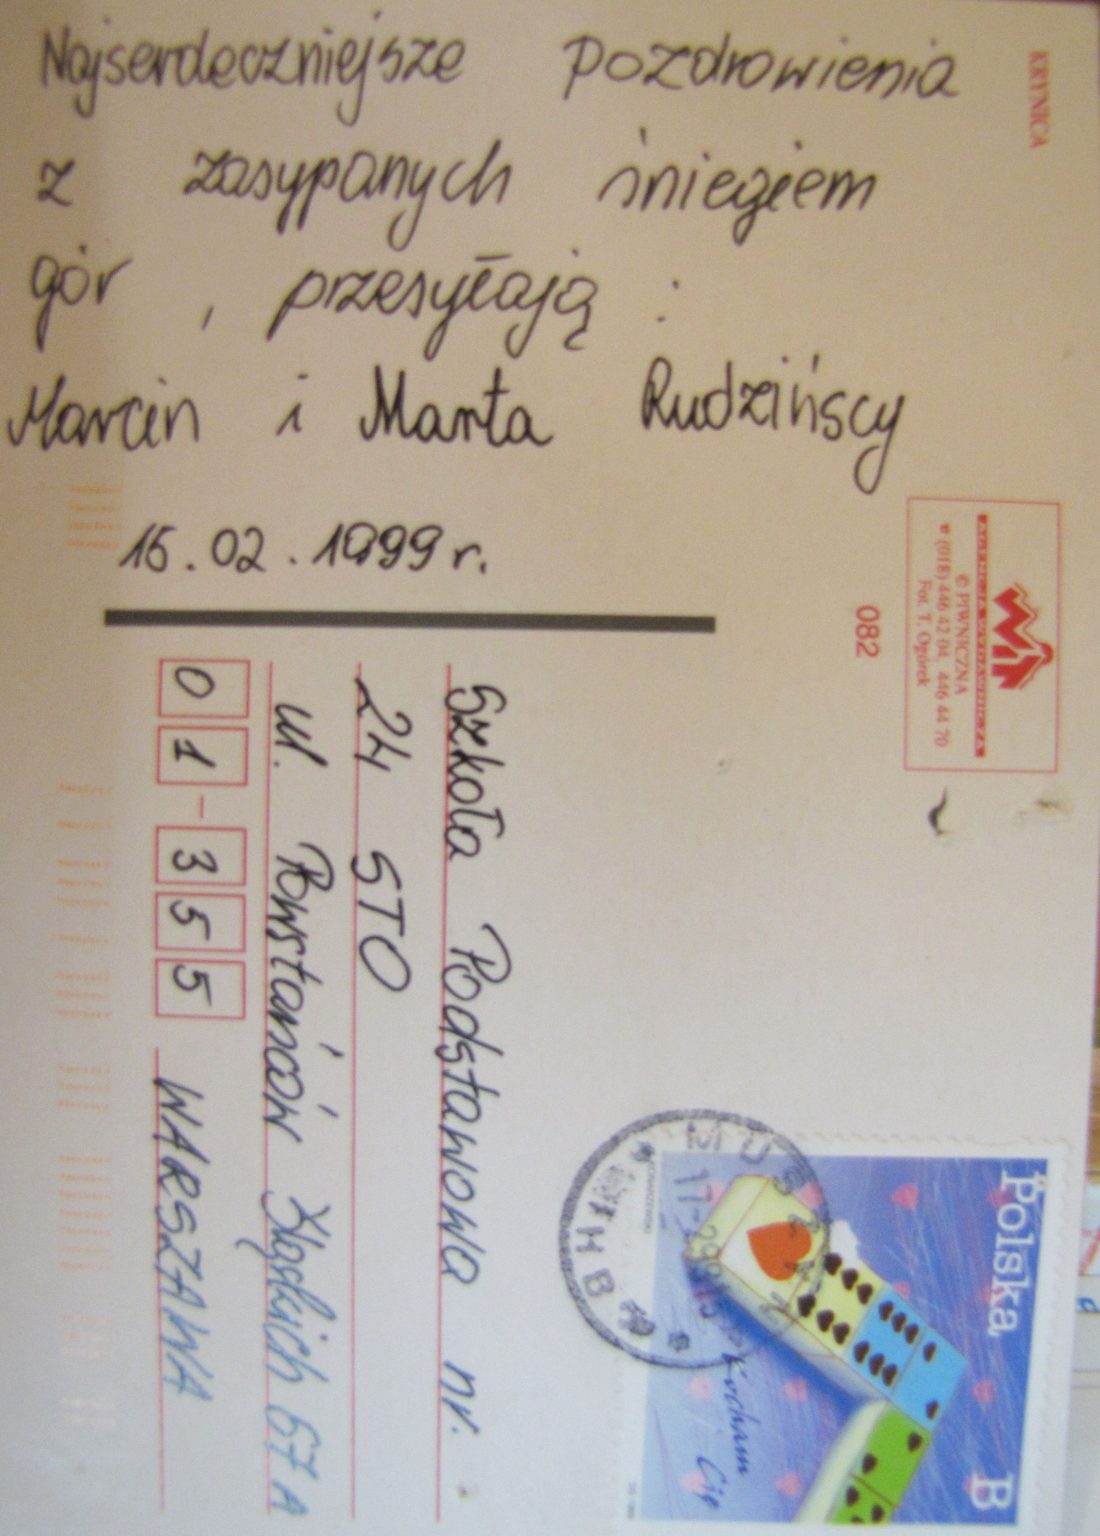 Najserdeczniejsze pozdrowienia
z zasypanych śniegiem
gór , przesyłają :
Marcin i Marta Rudzińscy
15.02.1999 r.
KRYNICA
© PIWNICZNA
(018) 446 42 04, 446 44 70
Fot. T. Ogórek
082
Szkoła Podstawowa nr.
24 STO
ul. Powstańców Śląskich 67A
01-355 WARSZAWA
Polska
B
Kocham Cię